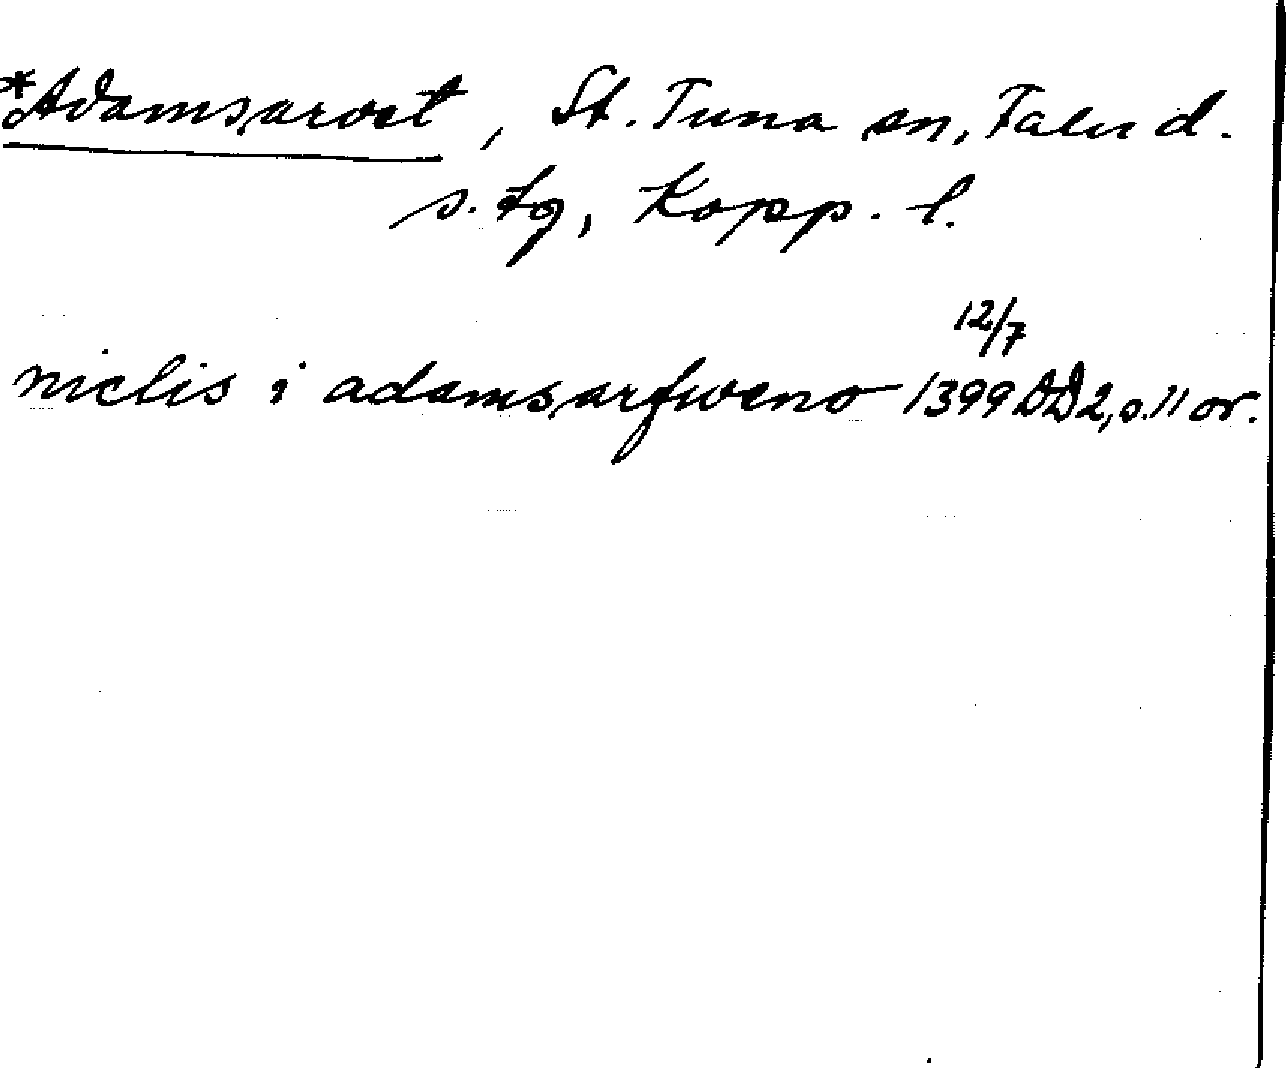 *Adamsarvet, St. Tuna sn, Falu d.
s. tg, Kopp. l.
12/7
niclis i adamsarfweno 1399 DD2, s. 11 or.